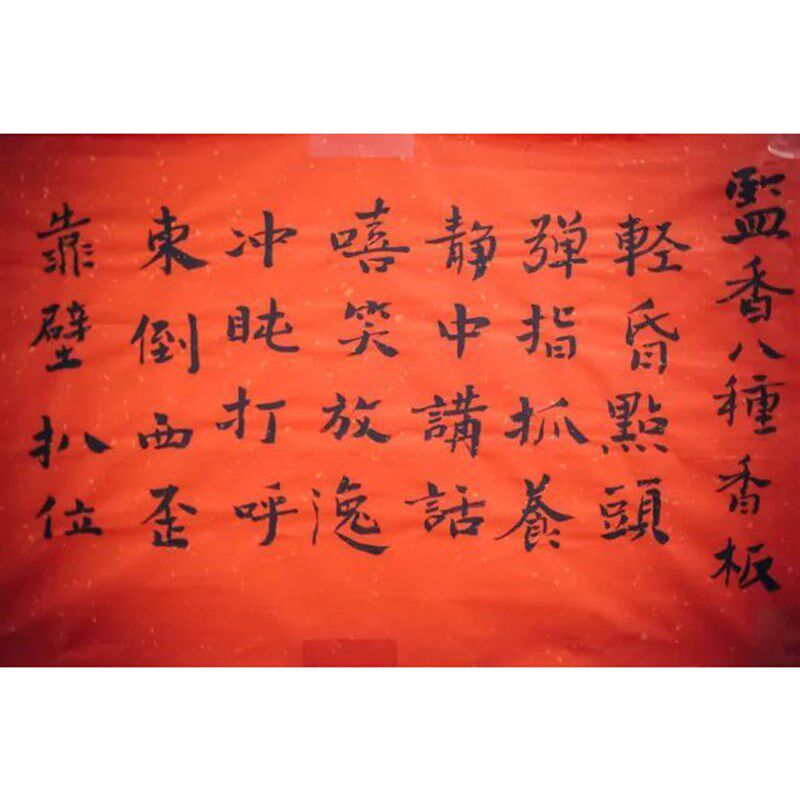 監香八種香板
軽昏點頭
弹指抓養
静中講話
嘻笑放逸
冲盹打呼
東倒西歪
靠壁扒位